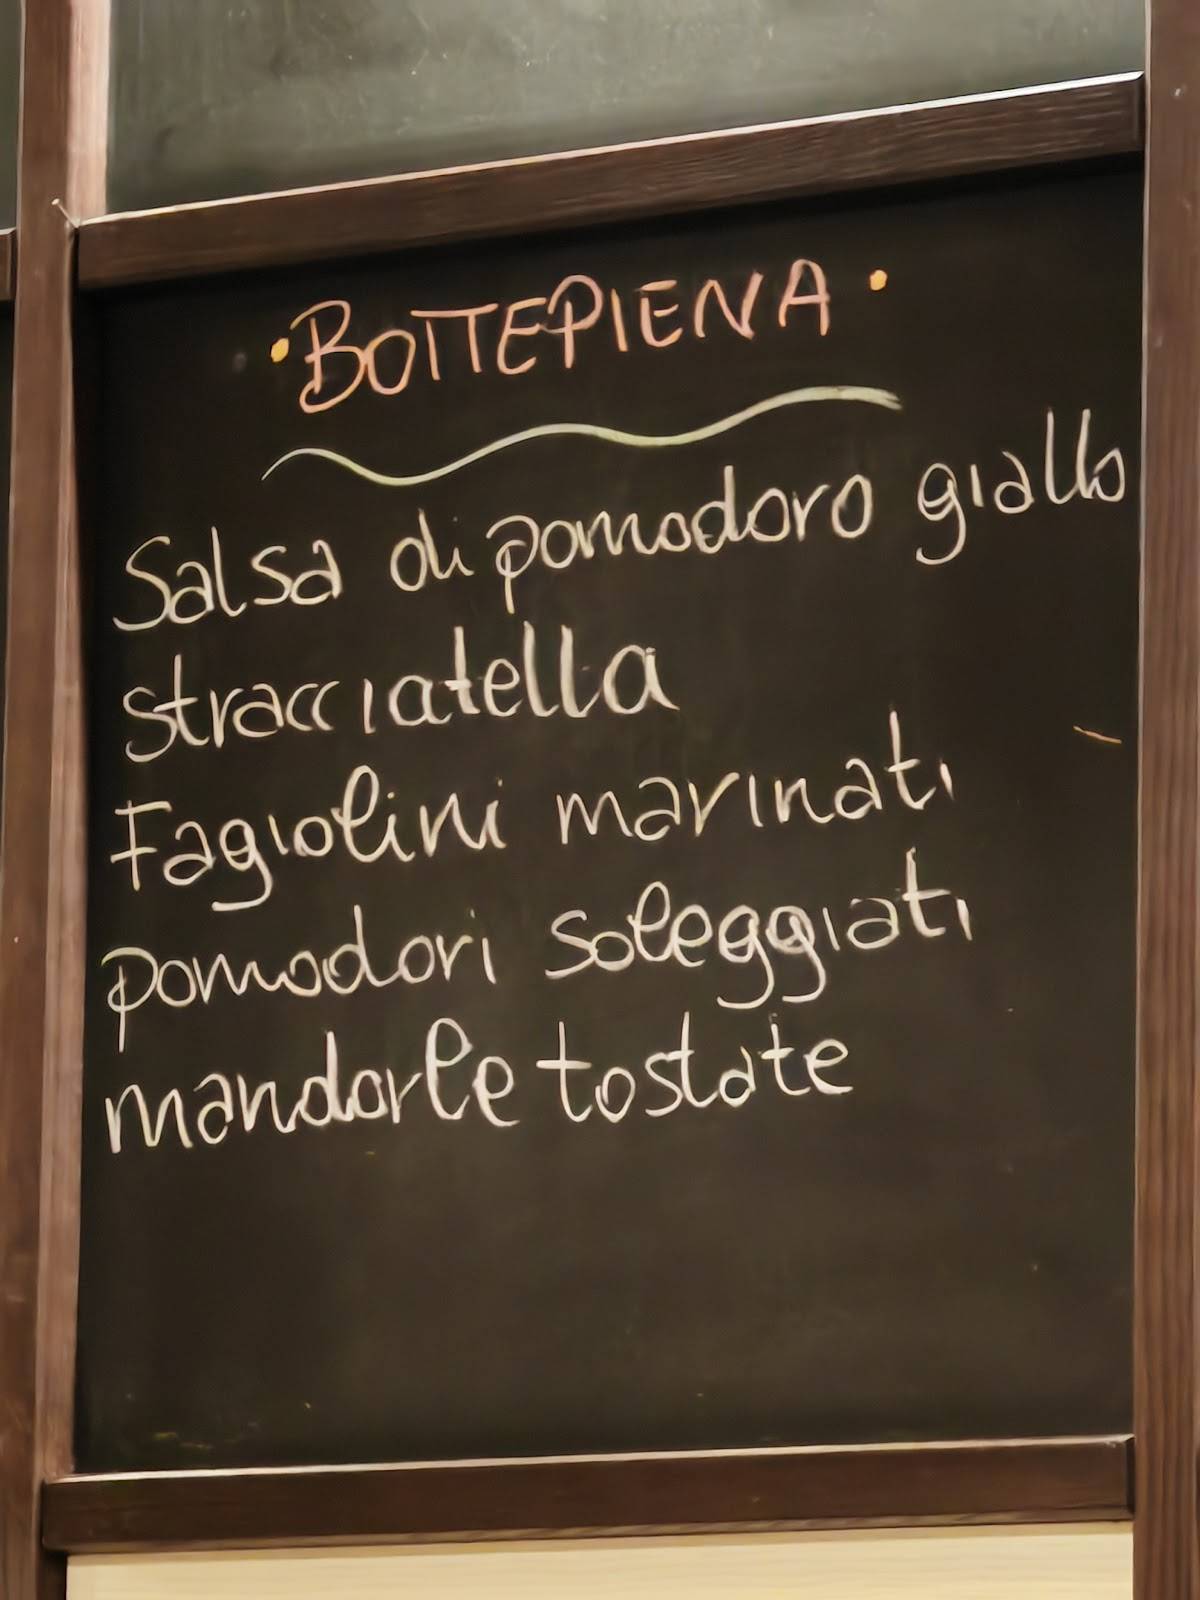 • BOTTEPIENA •
Salsa di pomodoro giallo
stracciatella
Fagiolini marinati
pomodori soleggiati
mandorle tostate